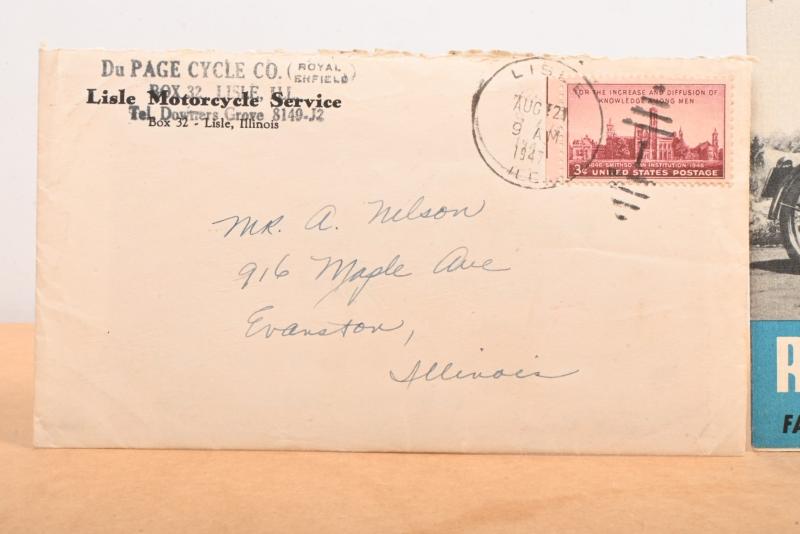 Du PAGE CYCLE CO. (ROYAL ENFIELD)
BOX 32, LISLE, ILL.
Lisle Motorcycle Service
Tel. Downers Grove 8149-J2
Box 32 - Lisle, Illinois
LISLE
AUG 21
9 AM
1947
ILL.
FOR THE INCREASE AND DIFFUSION OF
KNOWLEDGE AMONG MEN
1846 SMITHSONIAN INSTITUTION 1946
3¢ UNITED STATES POSTAGE
Mr. A. Nelson
916 Maple Ave
Evanston,
Illinois
R
FA